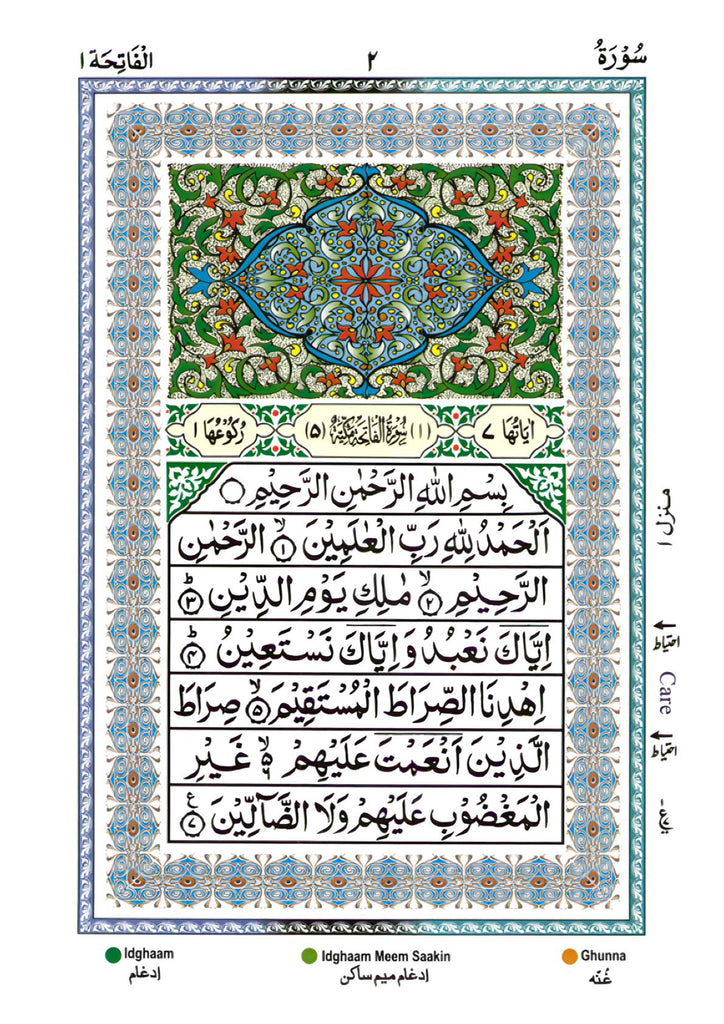 سُوْرَةُ ٢ الْفَاتِحَة ١
اٰيَاتُهَا ٧ (١) سُوْرَةُ الْفَاتِحَةِ مَكِّيَّةٌ (٥) رُكُوْعُهَا ١
بِسْمِ اللّٰهِ الرَّحْمٰنِ الرَّحِيْمِ ۝
اَلْحَمْدُ لِلّٰهِ رَبِّ الْعٰلَمِيْنَ ۙ﴿١﴾ الرَّحْمٰنِ
الرَّحِيْمِ ۙ﴿٢﴾ مٰلِكِ يَوْمِ الدِّيْنِ ؕ﴿٣﴾
اِيَّاكَ نَعْبُدُ وَاِيَّاكَ نَسْتَعِيْنُ ؕ﴿٤﴾
اِهْدِنَا الصِّرَاطَ الْمُسْتَقِيْمَ ۙ﴿٥﴾ صِرَاطَ
الَّذِيْنَ اَنْعَمْتَ عَلَيْهِمْ ۙ۬﴿٦﴾ غَيْرِ
الْمَغْضُوْبِ عَلَيْهِمْ وَلَا الضَّآلِّيْنَ ﴿٧﴾ ع
منزل ١
احتیاط
Care
احتیاط
Idghaam
ادغام
Idghaam Meem Saakin
ادغام میم ساکن
Ghunna
غُنّه